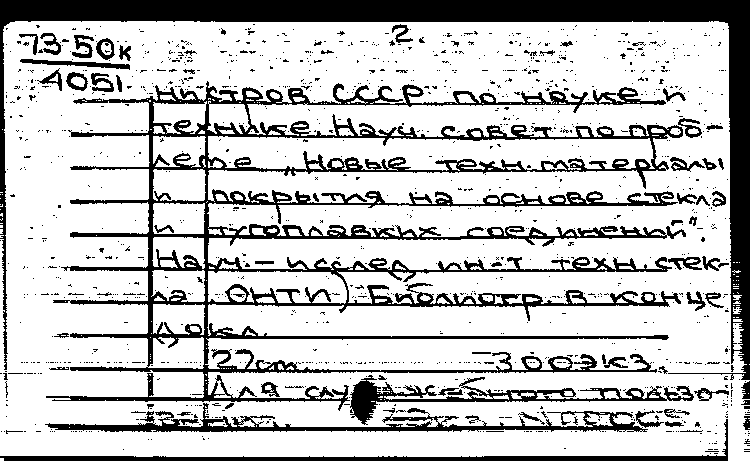 73-50к
4051
2.
нистров СССР по науке и
технике. Науч. совет по проб-
леме „Новые техн. материалы
и покрытия на основе стекла
и тугоплавких соединений".
Науч.-исслед. ин-т техн. стек-
ла. ОНТИ) Библиогр. в конце
докл.
27см. 300экз.
Для служебного пользо-
вания. Экз. N00005.